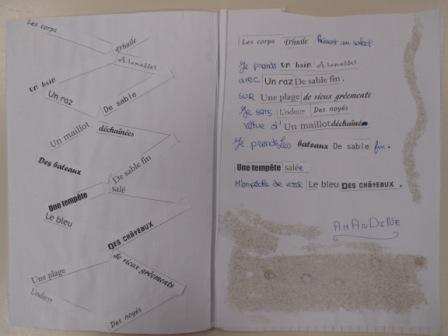 Les corps
D'huile
A lunulles
Un bain
Un raz
De sable
Un maillot
déchaînées
Des bateaux
De sable fin
Une tempête
salé
Le bleu
Des châteaux
de vieux gréements
Une plage
L'odeur
Des noyés
Les corps D'huile au soleil
Je prends un bain
avec Un raz De sable fin.
sur Une plage de vieux gréements
Je sens L'odeur Des noyés
Vêtue d'Un maillot déchaînée
Je prends les bateaux De sable fin.
Une tempête salée
M'empêche de Le bleu Des châteaux.
AMANDINE